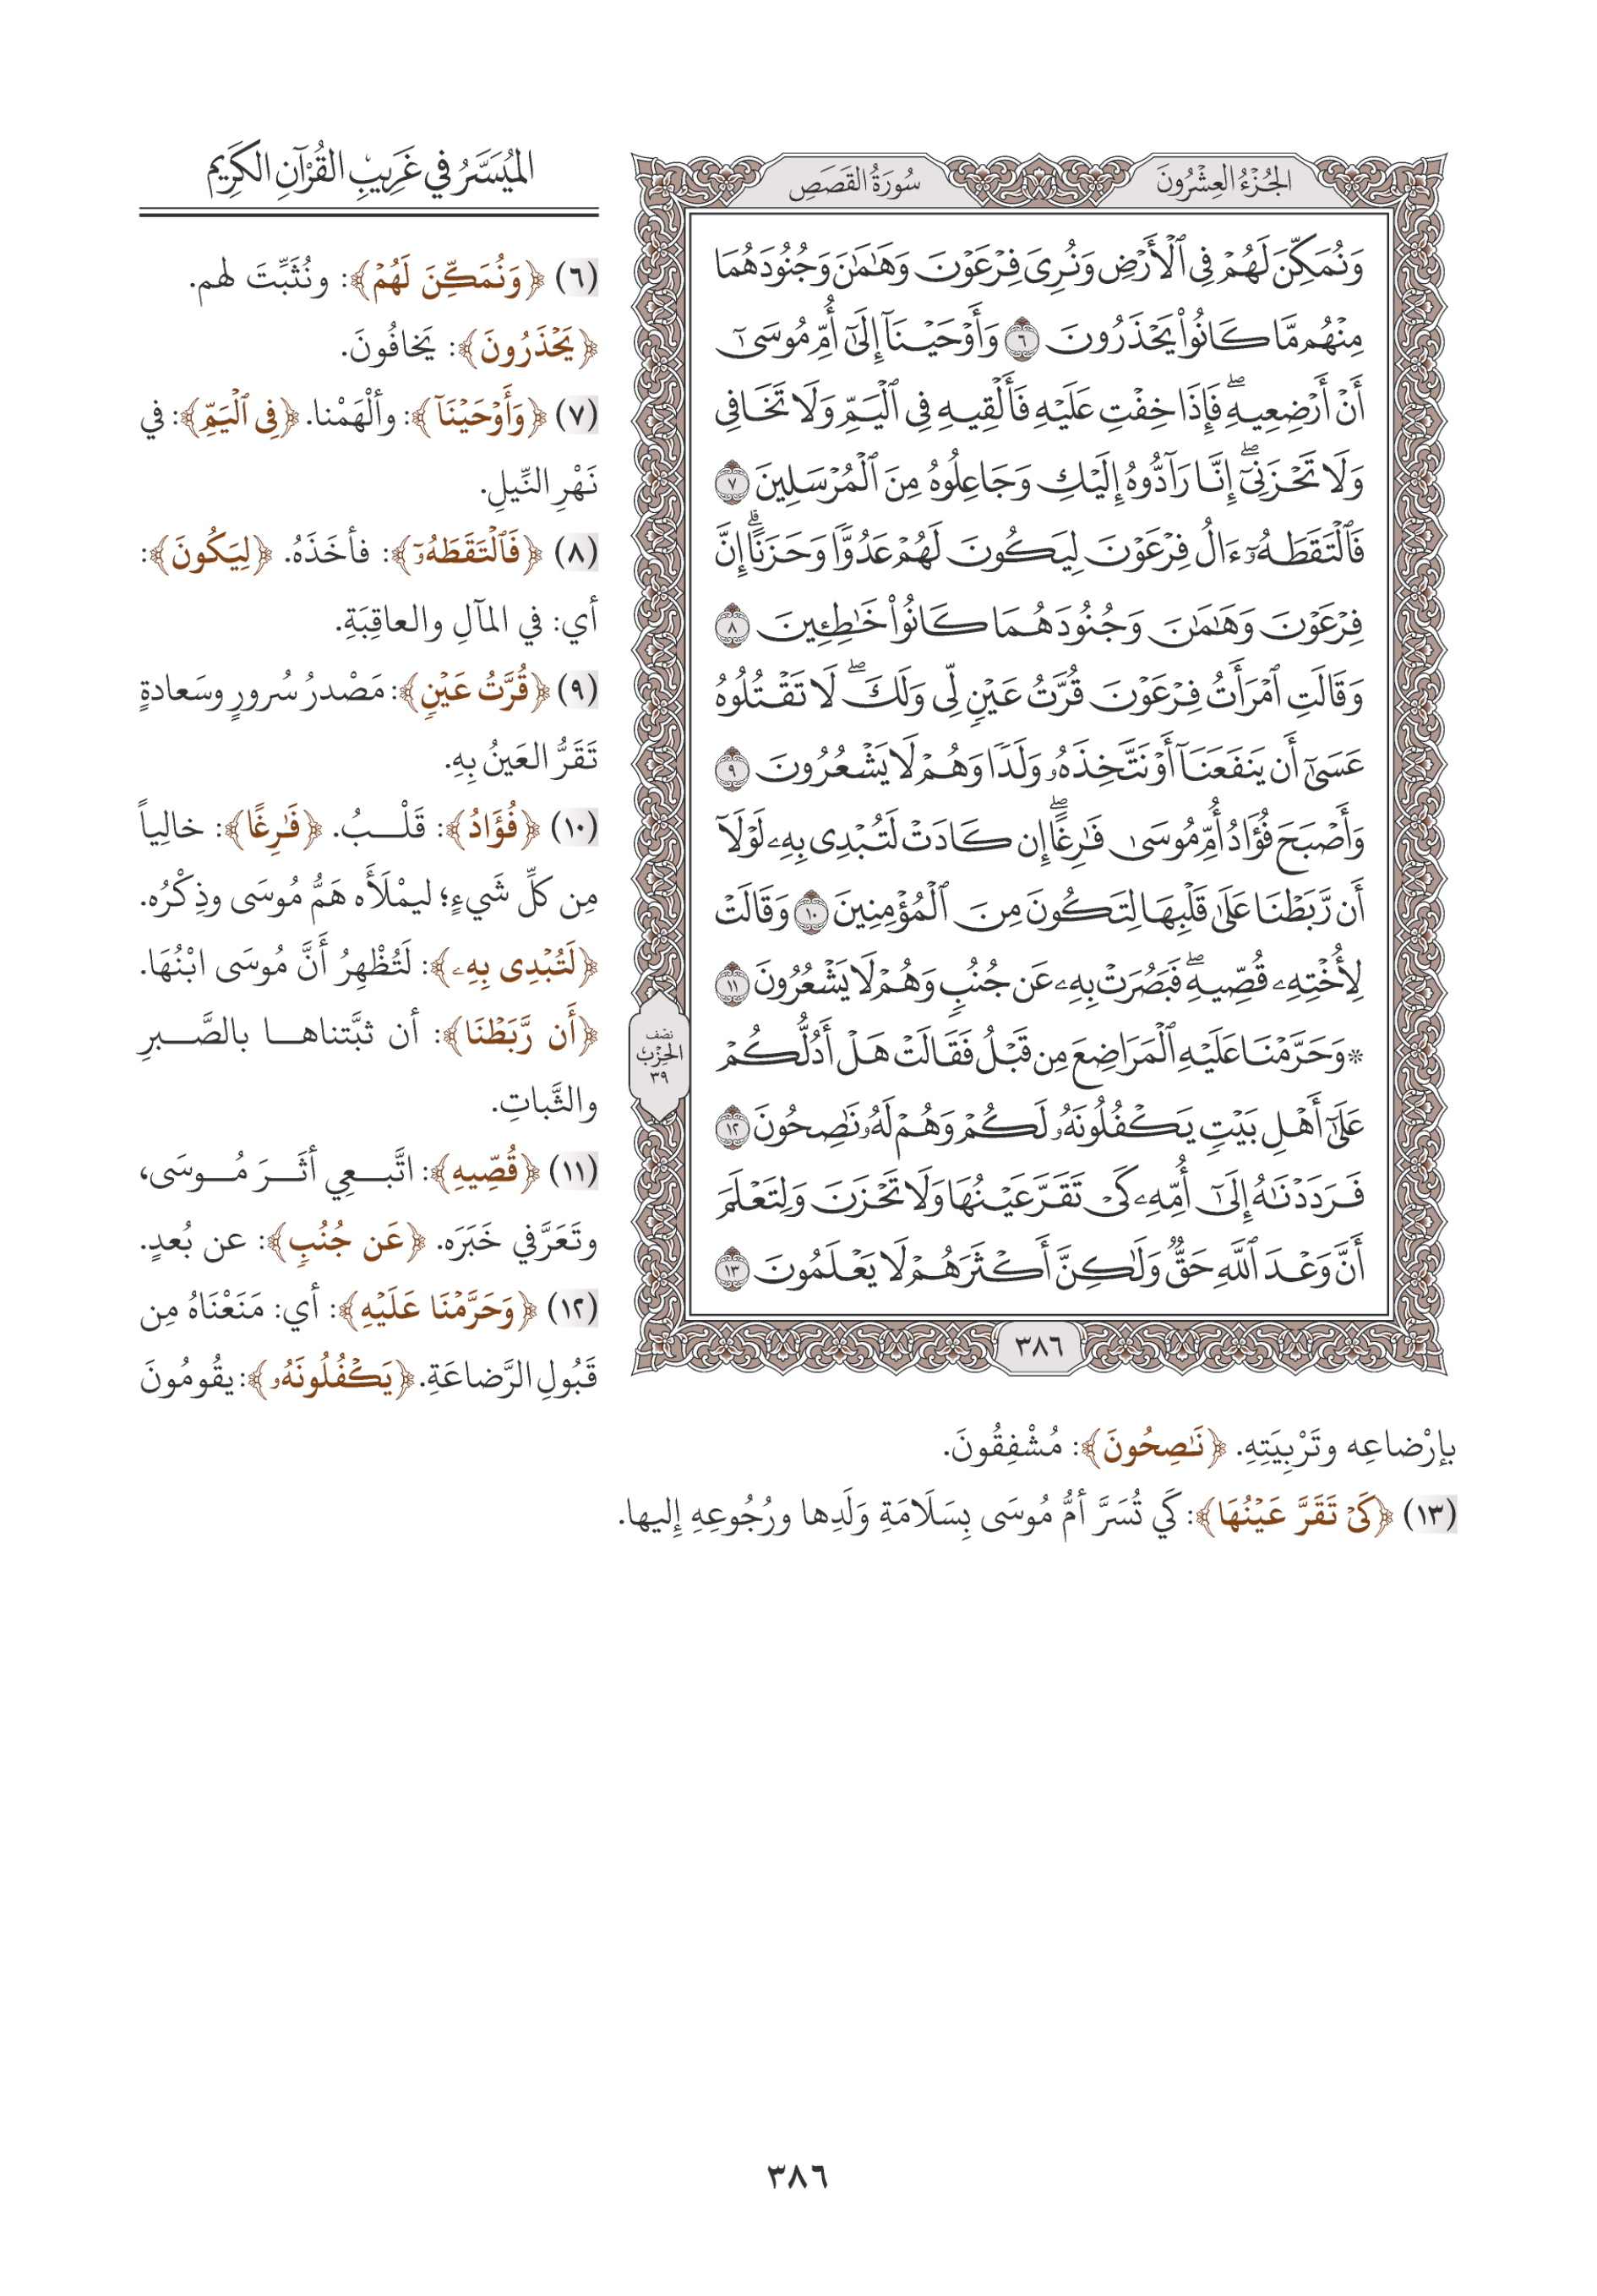 الميُسَّرُ في غَرِيبِ القُرْآنِ الكَرِيمِ
الجُزْءُ العِشْرُونَ
سُورَةُ القَصَصِ
وَنُمَكِّنَ لَهُمْ فِي ٱلْأَرْضِ وَنُرِيَ فِرْعَوْنَ وَهَٰمَٰنَ وَجُنُودَهُمَا
مِنْهُم مَّا كَانُوا۟ يَحْذَرُونَ ٦ وَأَوْحَيْنَآ إِلَىٰٓ أُمِّ مُوسَىٰٓ
أَنْ أَرْضِعِيهِۖ فَإِذَا خِفْتِ عَلَيْهِ فَأَلْقِيهِ فِي ٱلْيَمِّ وَلَا تَخَافِي
وَلَا تَحْزَنِيٓۖ إِنَّا رَآدُّوهُ إِلَيْكِ وَجَاعِلُوهُ مِنَ ٱلْمُرْسَلِينَ ٧
فَٱلْتَقَطَهُۥٓ ءَالُ فِرْعَوْنَ لِيَكُونَ لَهُمْ عَدُوًّا وَحَزَنًاۗ إِنَّ
فِرْعَوْنَ وَهَٰمَٰنَ وَجُنُودَهُمَا كَانُوا۟ خَٰطِـِٔينَ ٨
وَقَالَتِ ٱمْرَأَتُ فِرْعَوْنَ قُرَّتُ عَيْنٍ لِّي وَلَكَۖ لَا تَقْتُلُوهُ
عَسَىٰٓ أَن يَنفَعَنَآ أَوْ نَتَّخِذَهُۥ وَلَدًا وَهُمْ لَا يَشْعُرُونَ ٩
وَأَصْبَحَ فُؤَادُ أُمِّ مُوسَىٰ فَٰرِغًاۖ إِن كَادَتْ لَتُبْدِي بِهِۦ لَوْلَآ
أَن رَّبَطْنَا عَلَىٰ قَلْبِهَا لِتَكُونَ مِنَ ٱلْمُؤْمِنِينَ ١٠ وَقَالَتْ
لِأُخْتِهِۦ قُصِّيهِۖ فَبَصُرَتْ بِهِۦ عَن جُنُبٍ وَهُمْ لَا يَشْعُرُونَ ١١
۞ وَحَرَّمْنَا عَلَيْهِ ٱلْمَرَاضِعَ مِن قَبْلُ فَقَالَتْ هَلْ أَدُلُّكُمْ
عَلَىٰٓ أَهْلِ بَيْتٍ يَكْفُلُونَهُۥ لَكُمْ وَهُمْ لَهُۥ نَٰصِحُونَ ١٢
فَرَدَدْنَٰهُ إِلَىٰٓ أُمِّهِۦ كَيْ تَقَرَّ عَيْنُهَا وَلَا تَحْزَنَ وَلِتَعْلَمَ
أَنَّ وَعْدَ ٱللَّهِ حَقٌّ وَلَٰكِنَّ أَكْثَرَهُمْ لَا يَعْلَمُونَ ١٣
نصف
الحِزْب
٣٩
٣٨٦
(٦) ﴿وَنُمَكِّنَ لَهُمْ﴾: ونُثَبِّتَ لهم.
﴿يَحْذَرُونَ﴾: يَخافُونَ.
(٧) ﴿وَأَوْحَيْنَآ﴾: وألْهَمْنا. ﴿فِي ٱلْيَمِّ﴾: في
نَهْرِ النِّيلِ.
(٨) ﴿فَٱلْتَقَطَهُۥٓ﴾: فأخَذَهُ. ﴿لِيَكُونَ﴾:
أي: في المآلِ والعاقِبَةِ.
(٩) ﴿قُرَّتُ عَيْنٍ﴾: مَصْدرُ سُرورٍ وسَعادةٍ
تَقَرُّ العَينُ بِهِ.
(١٠) ﴿فُؤَادُ﴾: قَلْــبُ. ﴿فَٰرِغًا﴾: خالِياً
مِن كلِّ شَيءٍ؛ ليمْلَأَه هَمُّ مُوسَى وذِكْرُه.
﴿لَتُبْدِي بِهِۦ﴾: لَتُظْهِرُ أَنَّ مُوسَى ابْنُهَا.
﴿أَن رَّبَطْنَا﴾: أن ثبَّتناهـا بالصَّـبرِ
والثَّباتِ.
(١١) ﴿قُصِّيهِ﴾: اتَّبـعِي أثَـرَ مُـوسَى،
وتَعَرَّفي خَبَرَه. ﴿عَن جُنُبٍ﴾: عن بُعدٍ.
(١٢) ﴿وَحَرَّمْنَا عَلَيْهِ﴾: أي: مَنَعْنَاهُ مِن
قَبُولِ الرَّضاعَةِ. ﴿يَكْفُلُونَهُۥ﴾: يقُومُونَ
بإرْضاعِه وتَرْبِيَتِهِ. ﴿نَٰصِحُونَ﴾: مُشْفِقُونَ.
(١٣) ﴿كَيْ تَقَرَّ عَيْنُهَا﴾: كَي تُسَرَّ أمُّ مُوسَى بِسَلَامَةِ وَلَدِها ورُجُوعِهِ إليها.
٣٨٦